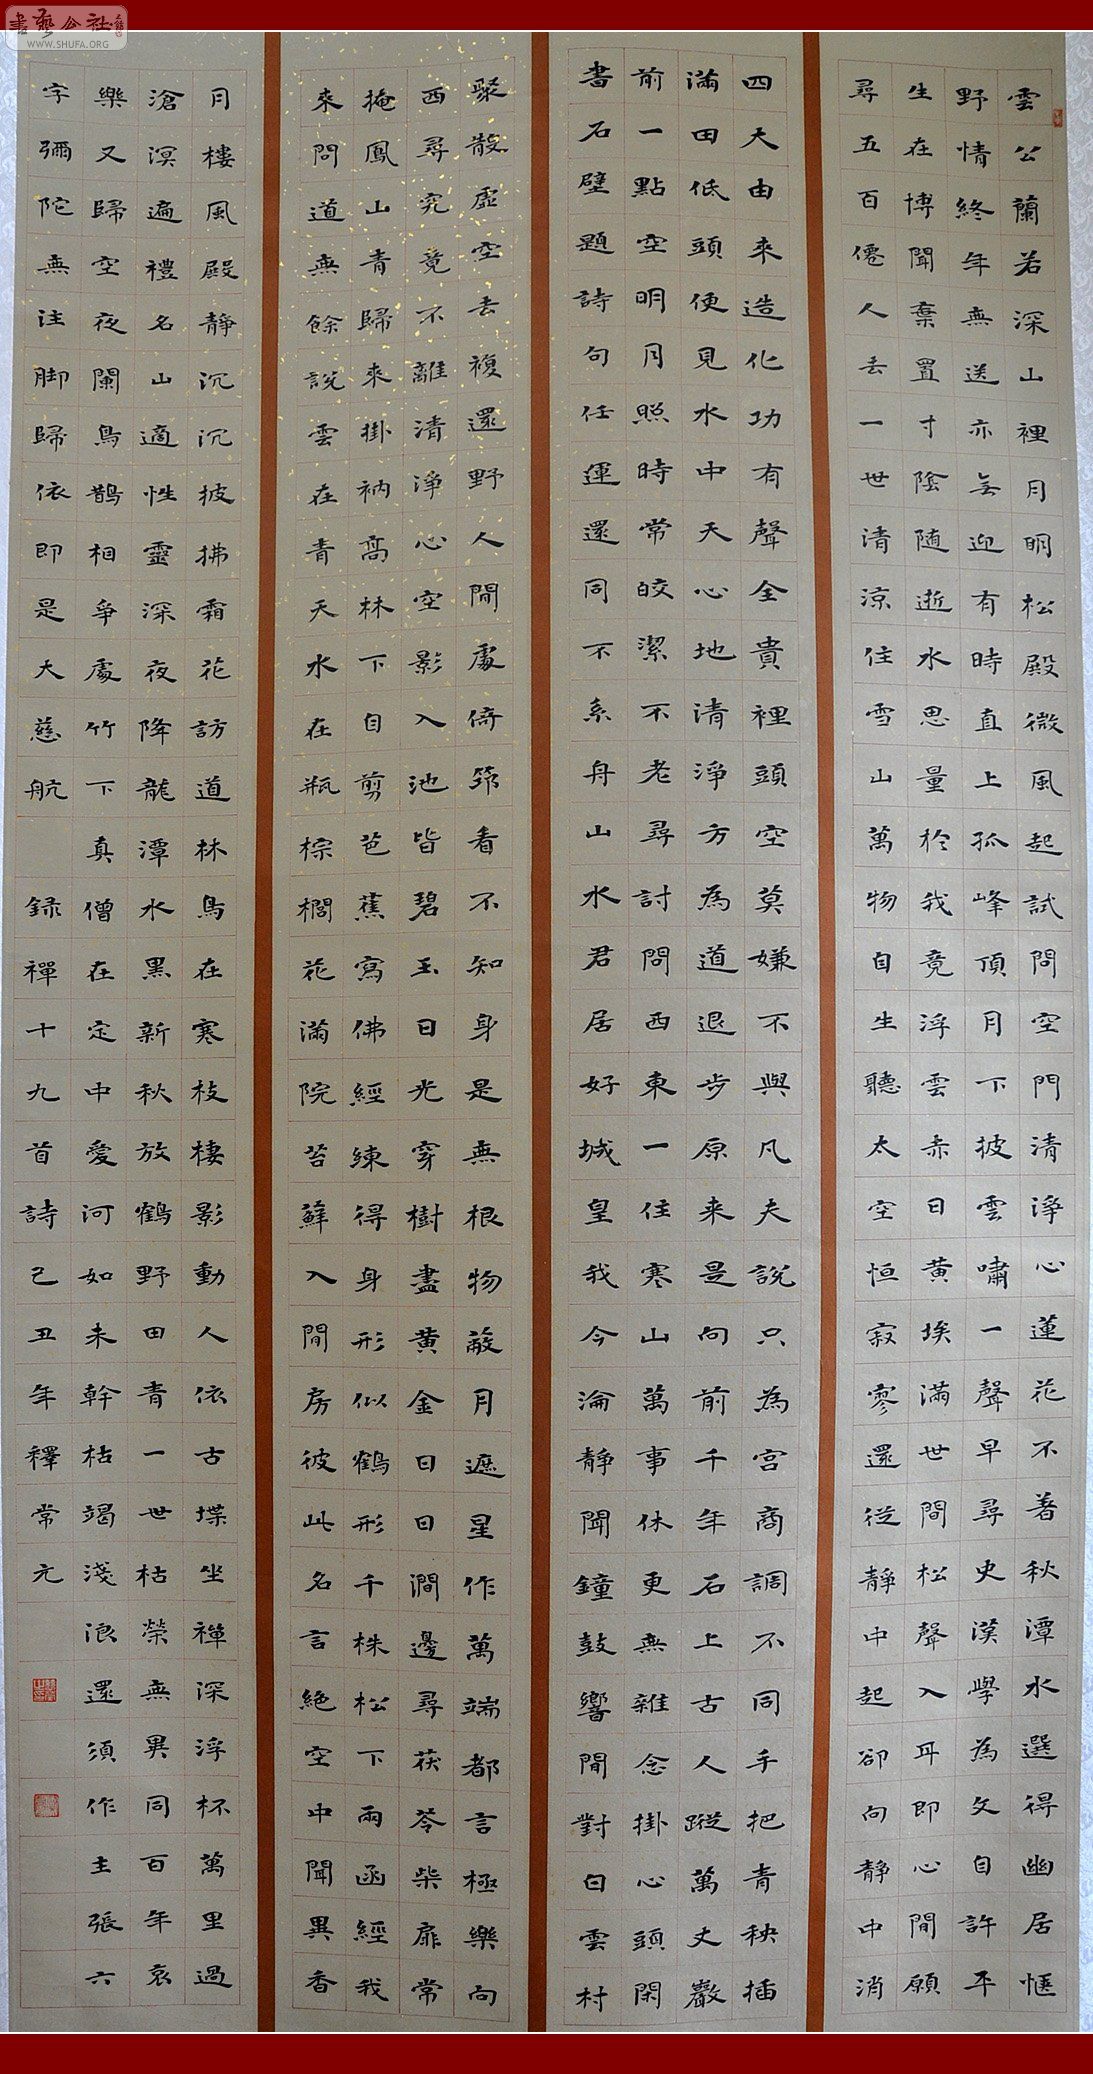 雲公蘭若深山裡月明松殿微風起試問空門清淨心蓮花不著秋潭水選得幽居愜
野情終年無送亦無迎有時直上孤峰頂月下披雲嘯一聲早尋史漢學為文自許平
生在博聞棄置寸陰随逝水思量於我竟浮雲赤日黃埃滿世間松聲入耳即心閒願
尋五百僊人去一世清涼住雪山萬物自生聽太空恒寂寥還從靜中起卻向靜中消
四大由來造化功有聲全貴裡頭空莫嫌不與凡夫說只為宮商調不同手把青秧插
滿田低頭便見水中天心地清淨方為道退步原来是向前千年石上古人蹤萬丈巖
前一點空明月照時常皎潔不老尋討問西東一住寒山萬事休更無雜念掛心頭閑
書石壁題詩句任運還同不系舟山水君居好城皇我今淪靜聞鐘鼓響閒對白雲村
聚散虛空去複還野人閒處倚筇看不知身是無根物蔽月遮星作萬端都言極樂向
西尋究竟不離清淨心空影入池皆碧玉日光穿樹盡黃金日日澗邊尋茯苓柴扉常
掩鳳山青歸來掛衲高林下自剪芭蕉寫佛經練得身形似鶴形千株松下兩函經我
來問道無餘說雲在青天水在瓶棕櫚花滿院苔蘚入閒房彼此名言絕空中聞異香
月樓風殿靜沉沉披拂霜花訪道林鳥在寒枝棲影動人依古堞坐禪深浮杯萬里過
滄溟遍禮名山適性靈深夜降龍潭水黑新秋放鶴野田青一世枯榮無異同百年哀
樂又歸空夜闌鳥鵲相爭處竹下真僧在定中愛河如未幹枯竭淺浪還須作主張六
字彌陀無注脚歸依即是大慈航 録禪十九首詩己丑年釋常元
書藝公社
WWW.SHUFA.ORG